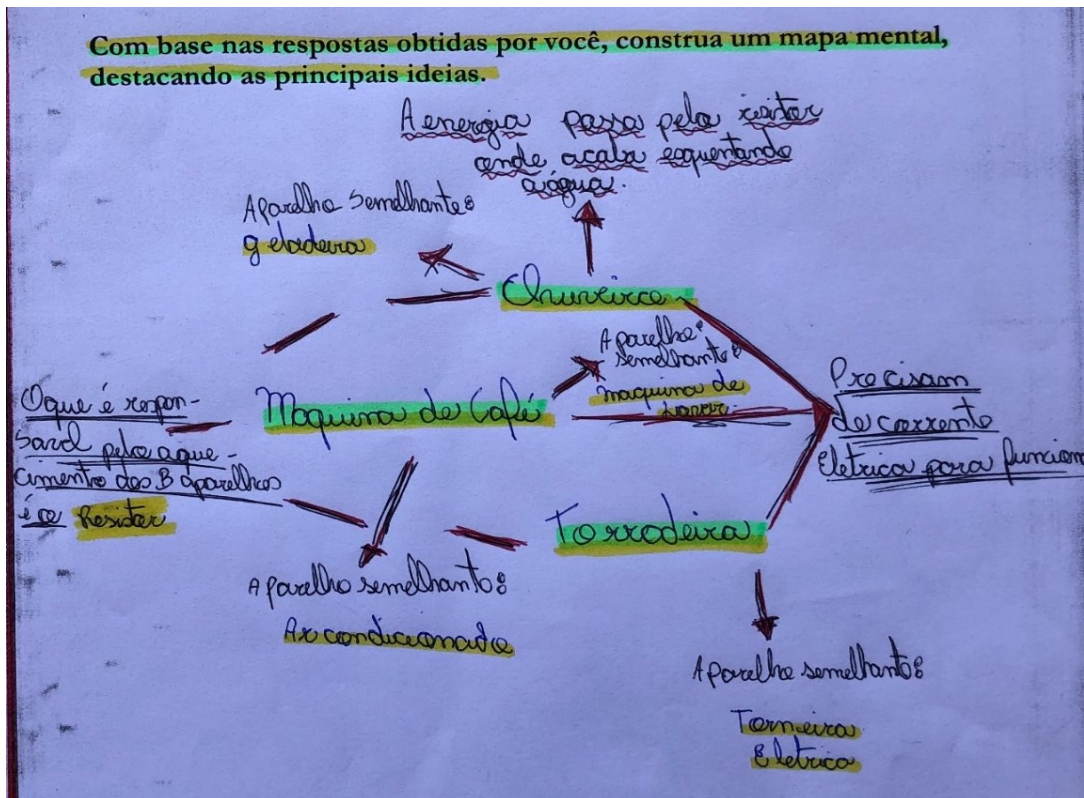 Com base nas respostas obtidas por você, construa um mapa mental,
destacando as principais ideias.
A energia passa pelo resitor
onde acaba esquentando
a água.
Aparelho Semelhante:
geladeira
Chuveiro
Aparelho:
semelhante:
maquina de
lavar.
Maquina de Café
Oque é respon-
savel pelo aque-
cimento dos 3 aparelhos
é o Resitor
Precisam
de corrente
Eletrica para funcionar
Torradeira
Aparelho semelhante:
Ar condicionado
Aparelho semelhante:
Torneira
Eletrica